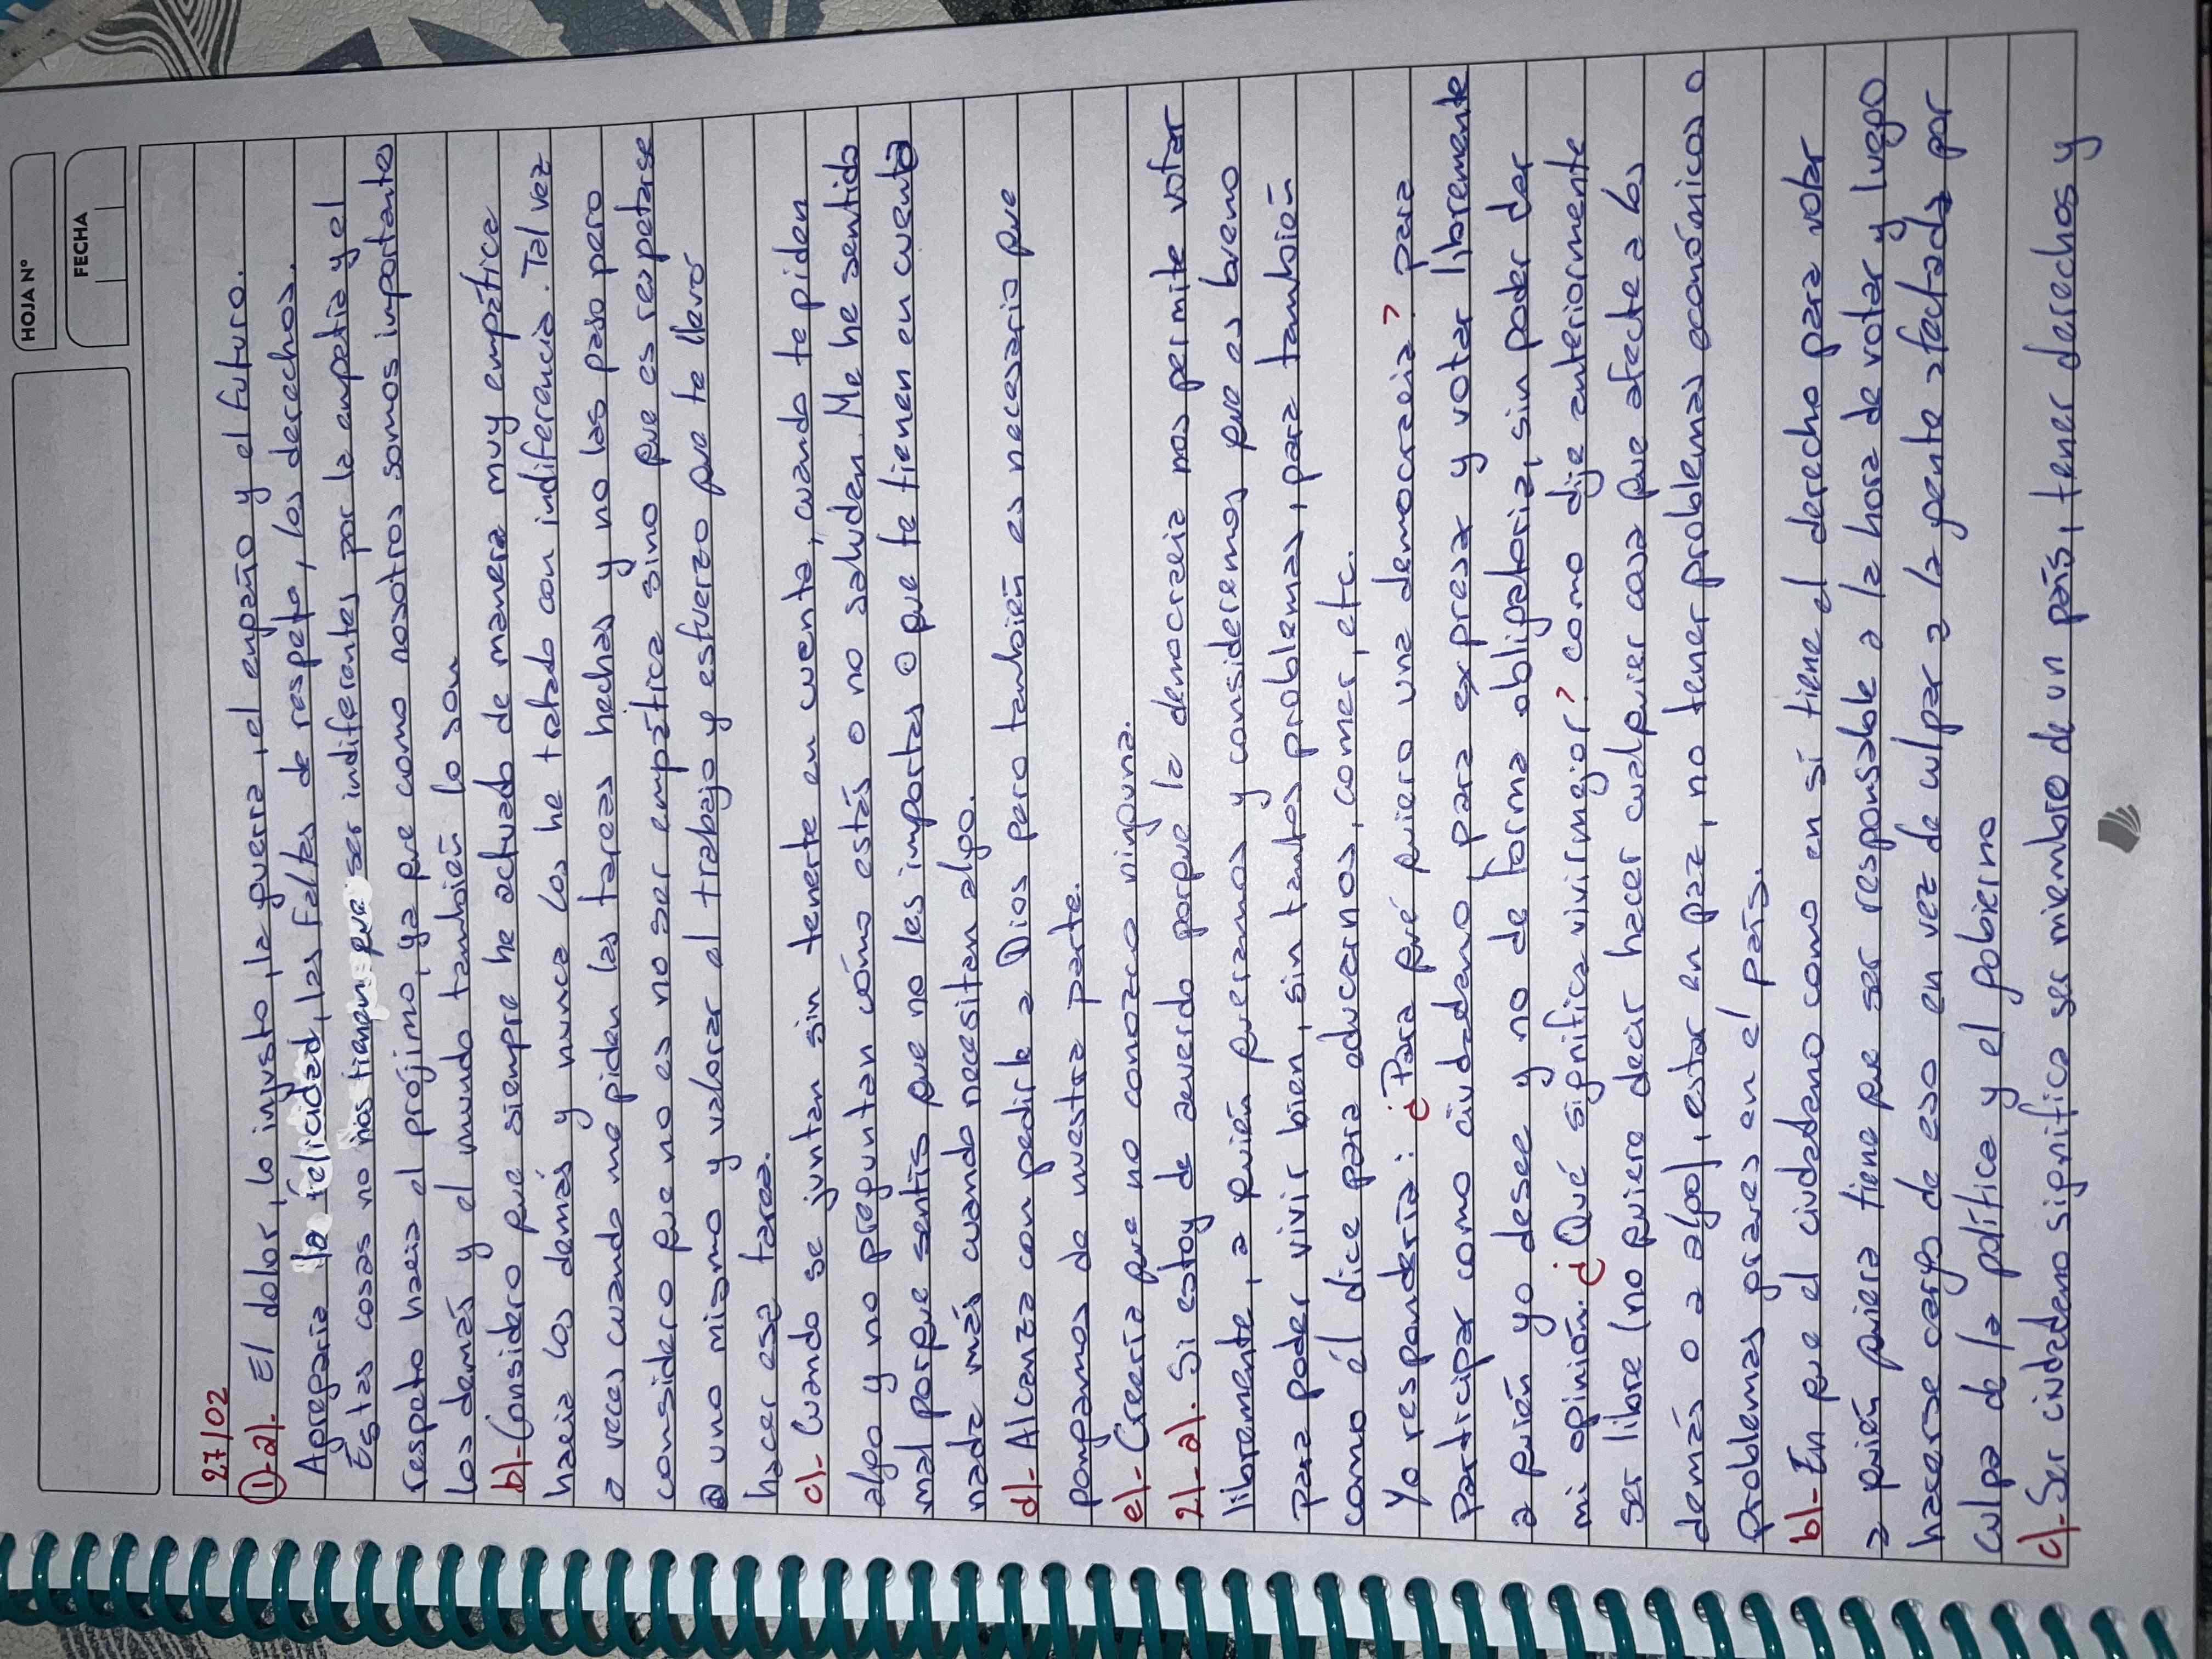 HOJA Nº
FECHA
27/02
1)-a)- El dolor, lo injusto, la guerra, el engaño y el futuro.
Agregaría la felicidad, las faltas de respeto, los derechos.
Estas cosas no nos tienen que ser indiferentes por la empatía y el
respeto hacia el prójimo, ya que como nosotros somos importantes
los demás y el mundo también lo son
b)- Considero que siempre he actuado de manera muy empática
hacia los demás y nunca los he tratado con indiferencia. Tal vez
a veces cuando me piden las tareas hechas y no las paso pero
considero que no es no ser empática sino que es respetarse
a uno mismo y valorar el trabajo y esfuerzo que te llevó
hacer esa tarea.
c)- Cuando se juntan sin tenerte en cuenta, cuando te piden
algo y no preguntan cómo estás o no saluden. Me he sentido
mal porque sentís que no les importas o que te tienen en cuenta
nada más cuando necesitan algo.
d)- Alcanza con pedirle a Dios pero también es necesario que
pongamos de nuestra parte.
e)- Creería que no conozco ninguna.
2)-a)- Si estoy de acuerdo porque la democracia nos permite votar
libremente, a quién queramos y consideremos que es bueno
para poder vivir bien, sin tantos problemas, para también
como él dice para educarnos, comer, etc.
Yo respondería: ¿Para qué quiero una democracia? para
Participar como ciudadano, para expresar y votar libremente
a quién yo desee y no de forma obligatoria, sin poder dar
mi opinión. ¿Qué significa vivir mejor? como dije anteriormente
ser libre (no quiere decir hacer cualquier cosa que afecte a los
demás o a algo), estar en paz, no tener problemas económicos o
Problemas graves en el país.
b)- En que el ciudadano como en sí tiene el derecho para votar
a quién quiera tiene que ser responsable a la hora de votar y luego
hacerse cargo de eso en vez de culpar a la gente afectada por
culpa de la política y el gobierno
c)- Ser ciudadano significa ser miembro de un país, tener derechos y